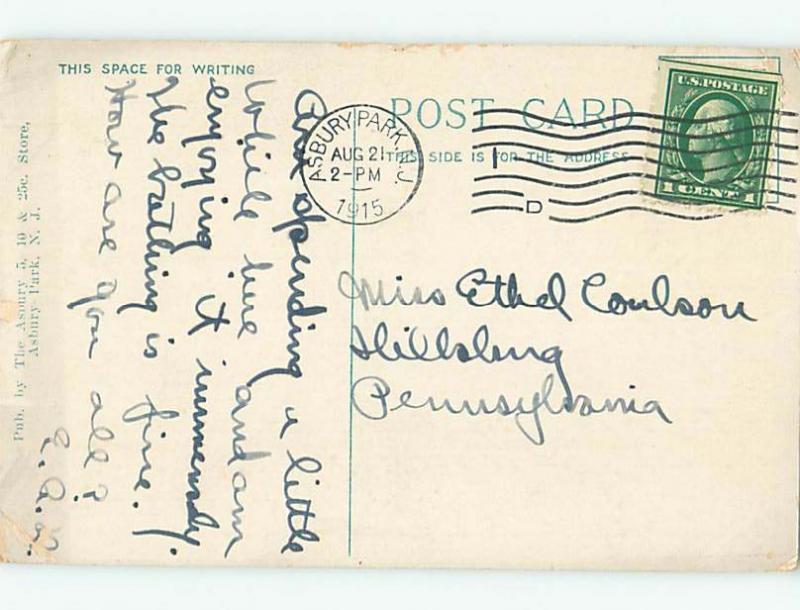 THIS SPACE FOR WRITING
POST CARD
THIS SIDE IS FOR THE ADDRESS
ASBURY PARK, N.J.
AUG 21
2-PM
1915
D
U.S. POSTAGE
1 CENT 1
Am spending a little
while here and am
enjoying it immensely.
The bathing is fine.
How are you all?
Miss Ethel Coulson
Hillsburg
Pennsylvania
Pub. by The Asbury 5, 10 & 25c. Store,
Asbury Park, N. J.